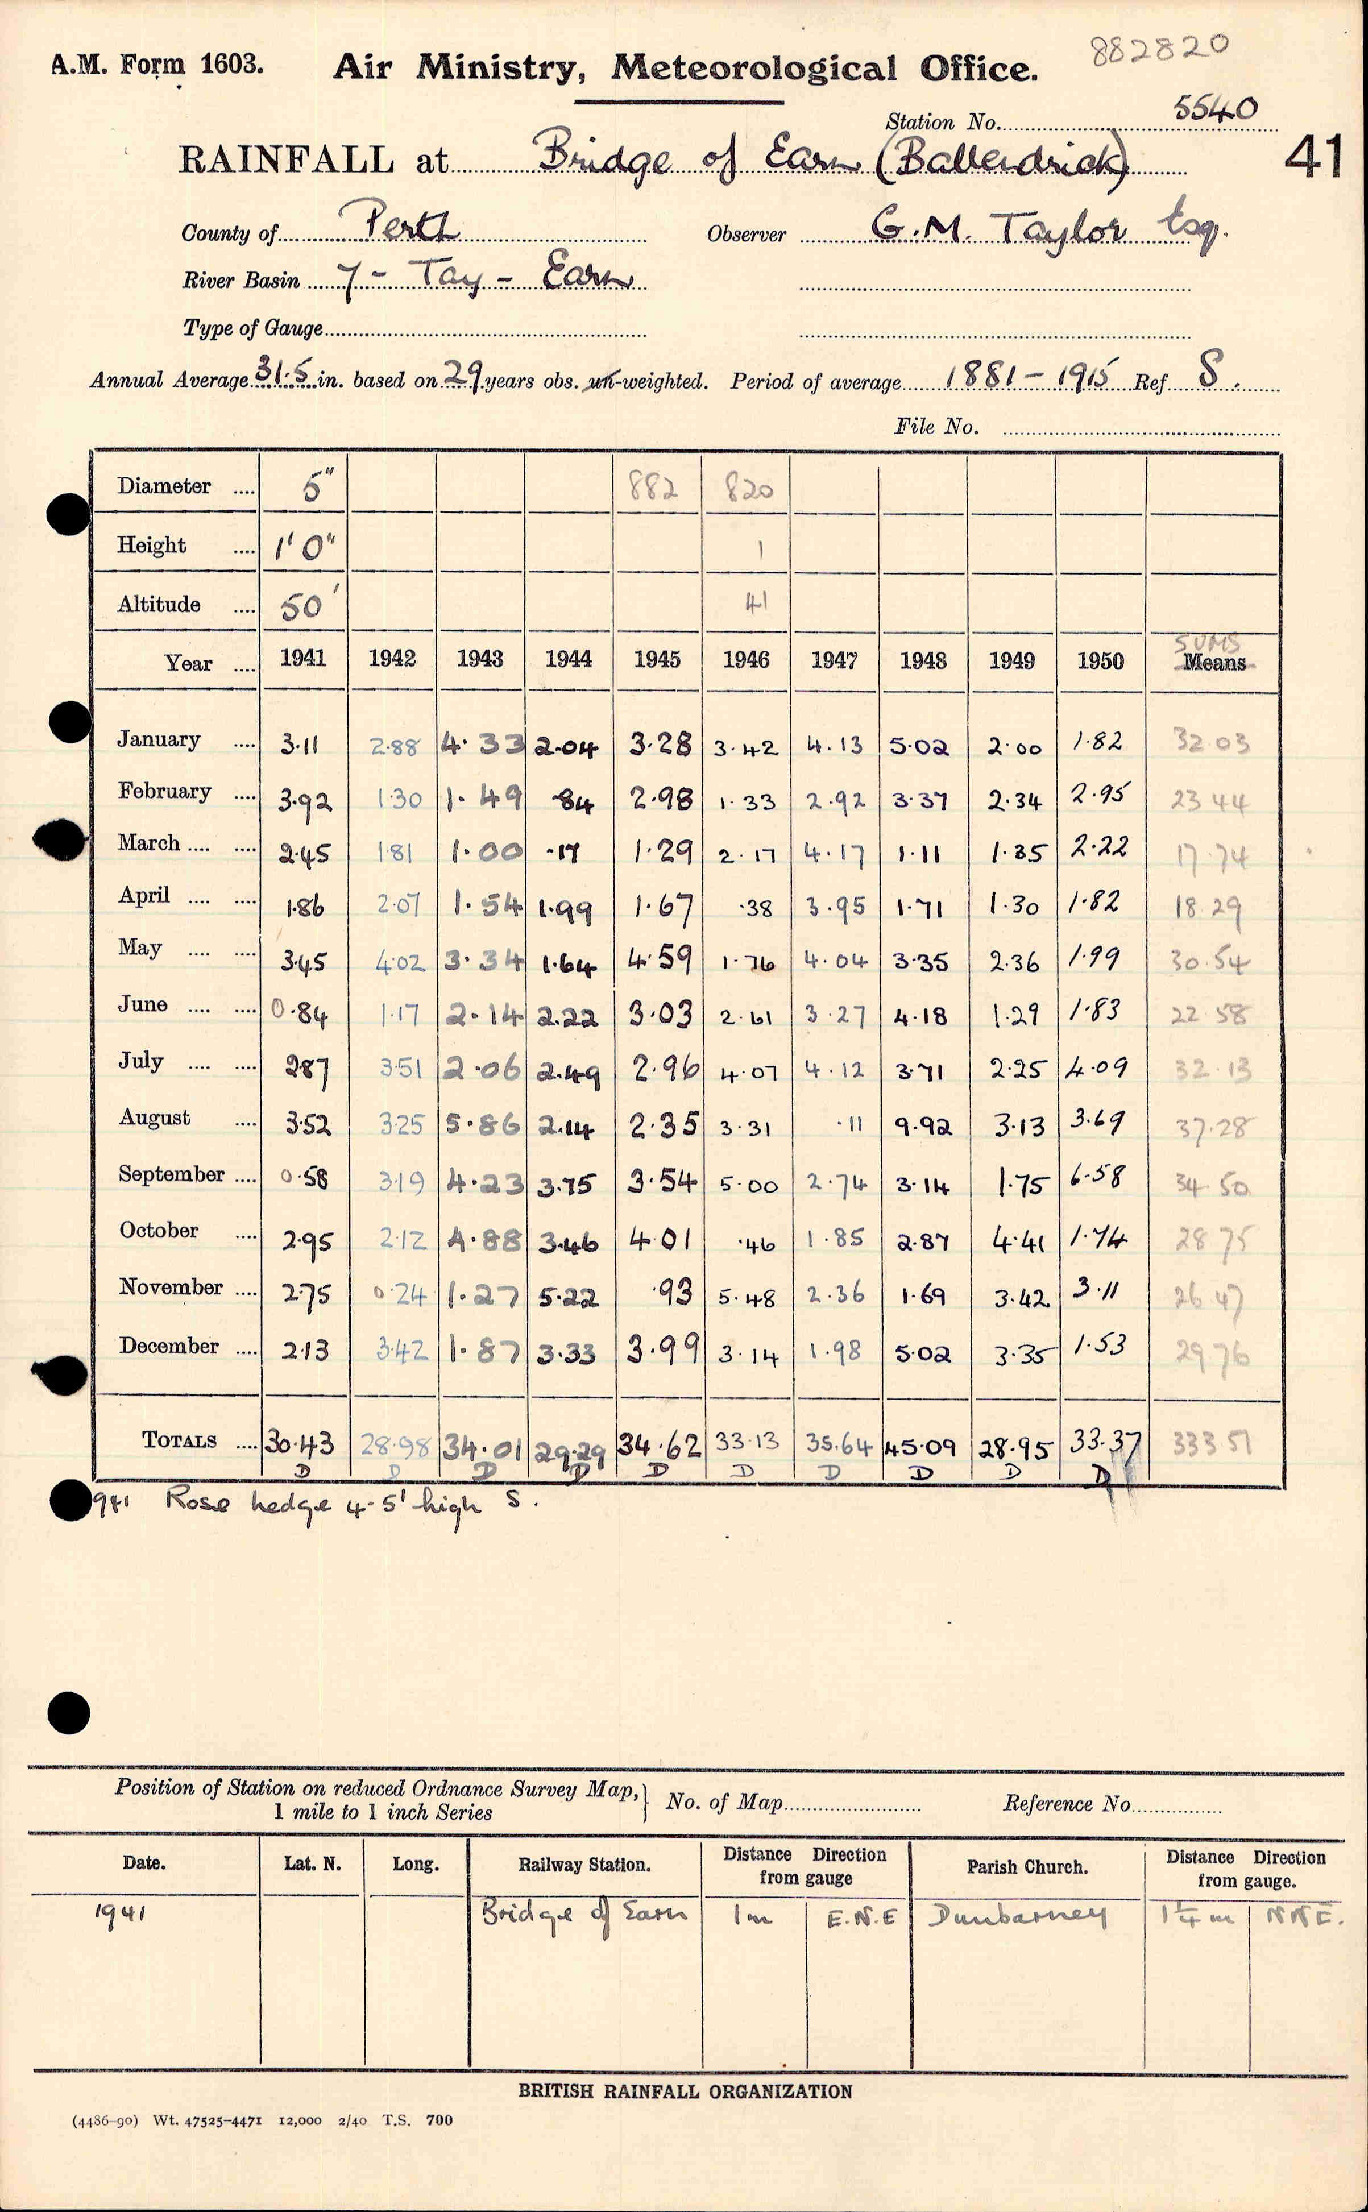 A.M. Form 1603. Air Ministry, Meteorological Office. 882820
Station No. 5540
RAINFALL at Bridge of Earn (Ballendrick) 41
County of Perth Observer G.M. Taylor Esq.
River Basin 7 - Tay - Earn
Type of Gauge
Annual Average 31.5 in. based on 29 years obs. un-weighted. Period of average 1881-1915 Ref S.
File No.
Diameter .... 5" 882 820
Height .... 1'0" 1
Altitude .... 50' 41
SUMS
Year .... 1941 1942 1943 1944 1945 1946 1947 1948 1949 1950 Means
January .... 3.11 2.88 4.33 2.04 3.28 3.42 4.13 5.02 2.00 1.82 32.03
February .... 3.92 1.30 1.49 .84 2.98 1.33 2.92 3.37 2.34 2.95 23.44
March .... .... 2.45 1.81 1.00 .17 1.29 2.17 4.17 1.11 1.35 2.22 17.74
April .... .... 1.86 2.07 1.54 1.99 1.67 .38 3.95 1.71 1.30 1.82 18.29
May .... .... 3.45 4.02 3.34 1.64 4.59 1.76 4.04 3.35 2.36 1.99 30.54
June .... .... 0.84 1.17 2.14 2.22 3.03 2.61 3.27 4.18 1.29 1.83 22.58
July .... .... 2.87 3.51 2.06 2.49 2.96 4.07 4.12 3.71 2.25 4.09 32.13
August .... 3.52 3.25 5.86 2.14 2.35 3.31 .11 9.92 3.13 3.69 37.28
September .... 0.58 3.19 4.23 3.75 3.54 5.00 2.74 3.14 1.75 6.58 34.50
October .... 2.95 2.12 4.88 3.46 4.01 .46 1.85 2.87 4.41 1.74 28.75
November .... 2.75 0.24 1.27 5.22 .93 5.48 2.36 1.69 3.42 3.11 26.47
December .... 2.13 3.42 1.87 3.33 3.99 3.14 1.98 5.02 3.35 1.53 29.76
TOTALS .... 30.43 28.98 34.01 29.29 34.62 33.13 35.64 45.09 28.95 33.37 333.51
D D D D D D D D D D
941 Rose hedge 4-5' high S.
Position of Station on reduced Ordnance Survey Map,} No. of Map Reference No
1 mile to 1 inch Series
Date. Lat. N. Long. Railway Station. Distance from gauge Direction Parish Church. Distance Direction from gauge.
1941 Bridge of Earn 1m E.N.E Dunbarney 1¼ m NNE.
BRITISH RAINFALL ORGANIZATION
(4486-90) Wt. 47525-4471 12,000 2/40 T.S. 700